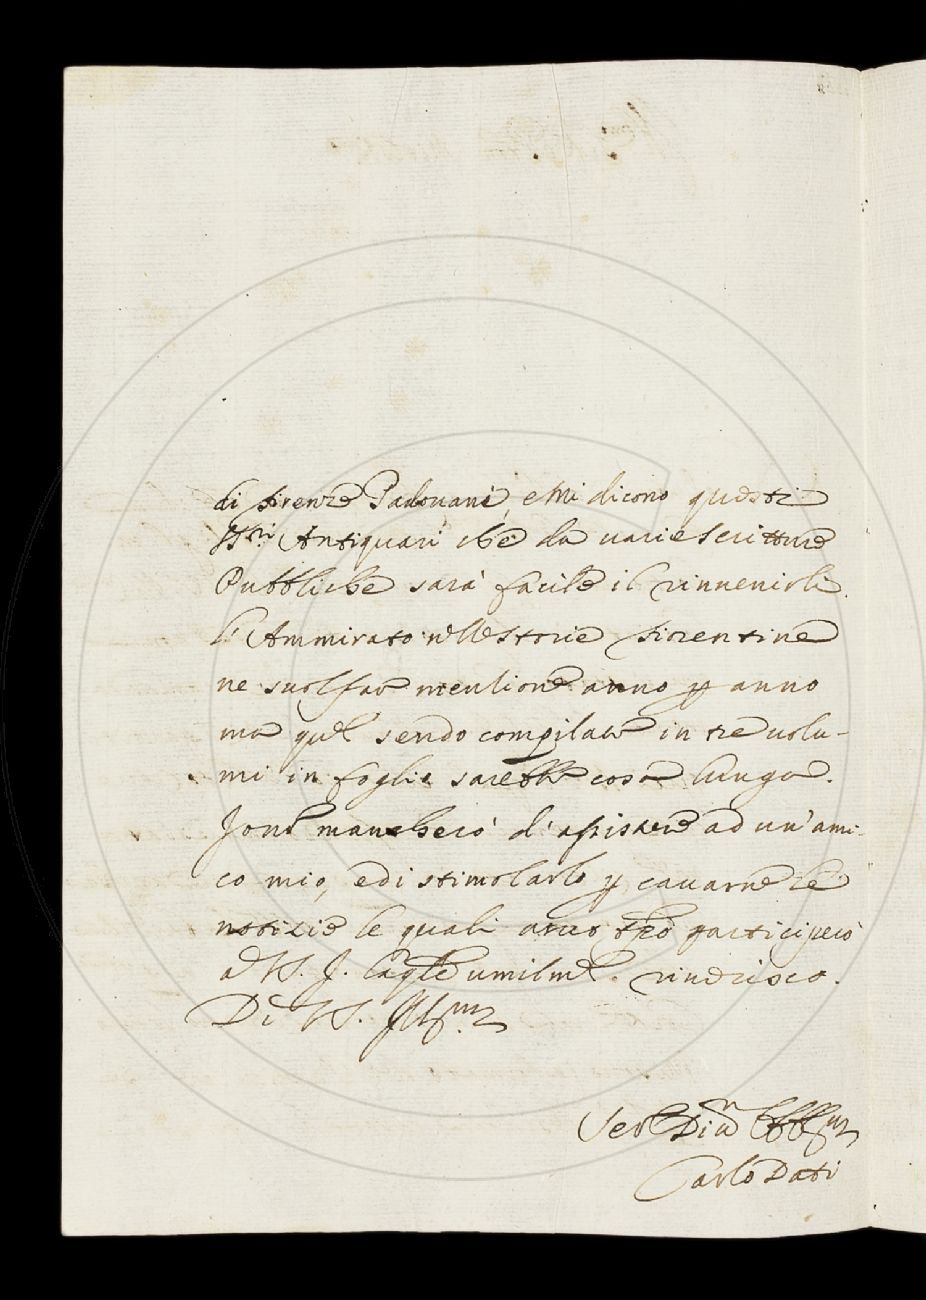 di Firenze Padovani, e Mi dicono questi
SS.ri Antiquari che da varie scritture
Pubbliche sarà facile il rinvenirli.
L'Ammirato nelle storie fiorentine
ne suol far mentione anno p anno
ma quelle sendo compilate in tre volu-
mi in foglio sarebbe cosa lunga.
Io non mancherò d'assistere ad un'ami-
co mio, e di stimolarlo p cavarne le
notizie le quali avute participerò
a V. S. I. la qle umilmte. riverisco.
Di V. S. Illma
Carlo Dati